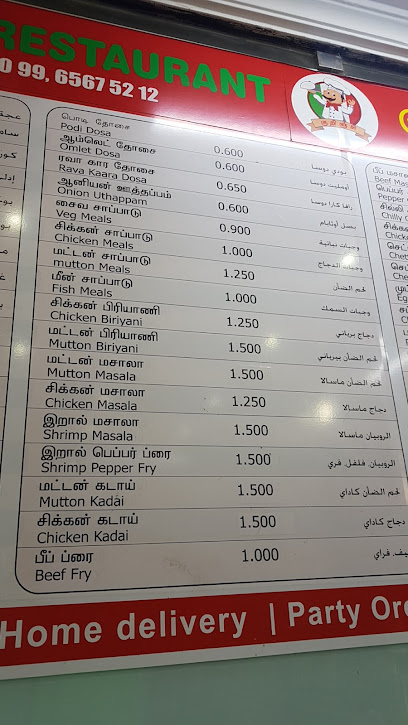 RESTAURANT
0 99, 6567 52 12
பொடி தோசை
Podi Dosa 0.600 بودي دوسا
ஆம்லெட் தோசை
Omlet Dosa 0.600 أومليت دوسا
ரவா கார தோசை
Rava Kaara Dosa 0.650 رافا كارا دوسا
ஆனியன் ஊத்தப்பம்
Onion Uthappam 0.600 بصل أوتابام
சைவ சாப்பாடு
Veg Meals 0.900 وجبات نباتية
சிக்கன் சாப்பாடு
Chicken Meals 1.000 وجبات الدجاج
மட்டன் சாப்பாடு
mutton Meals 1.250 لحم الضأن
மீன் சாப்பாடு
Fish Meals 1.000 وجبات السمك
சிக்கன் பிரியாணி
Chicken Biriyani 1.250 دجاج برياني
மட்டன் பிரியாணி
Mutton Biriyani 1.500 لحم الضأن بيرياني
மட்டன் மசாலா
Mutton Masala 1.500 لحم الضأن ماسالا
சிக்கன் மசாலா
Chicken Masala 1.250 دجاج ماسالا
இறால் மசாலா
Shrimp Masala 1.500 الروبيان ماسالا
இறால் பெப்பர் ப்ரை
Shrimp Pepper Fry 1.500 الروبيان. فلفل. فري
மட்டன் கடாய்
Mutton Kadai 1.500 لحم الضأن كاداي
சிக்கன் கடாய்
Chicken Kadai 1.500 دجاج كاداي
பீப் ப்ரை
Beef Fry 1.000 يف. فراي
Home delivery | Party Ord